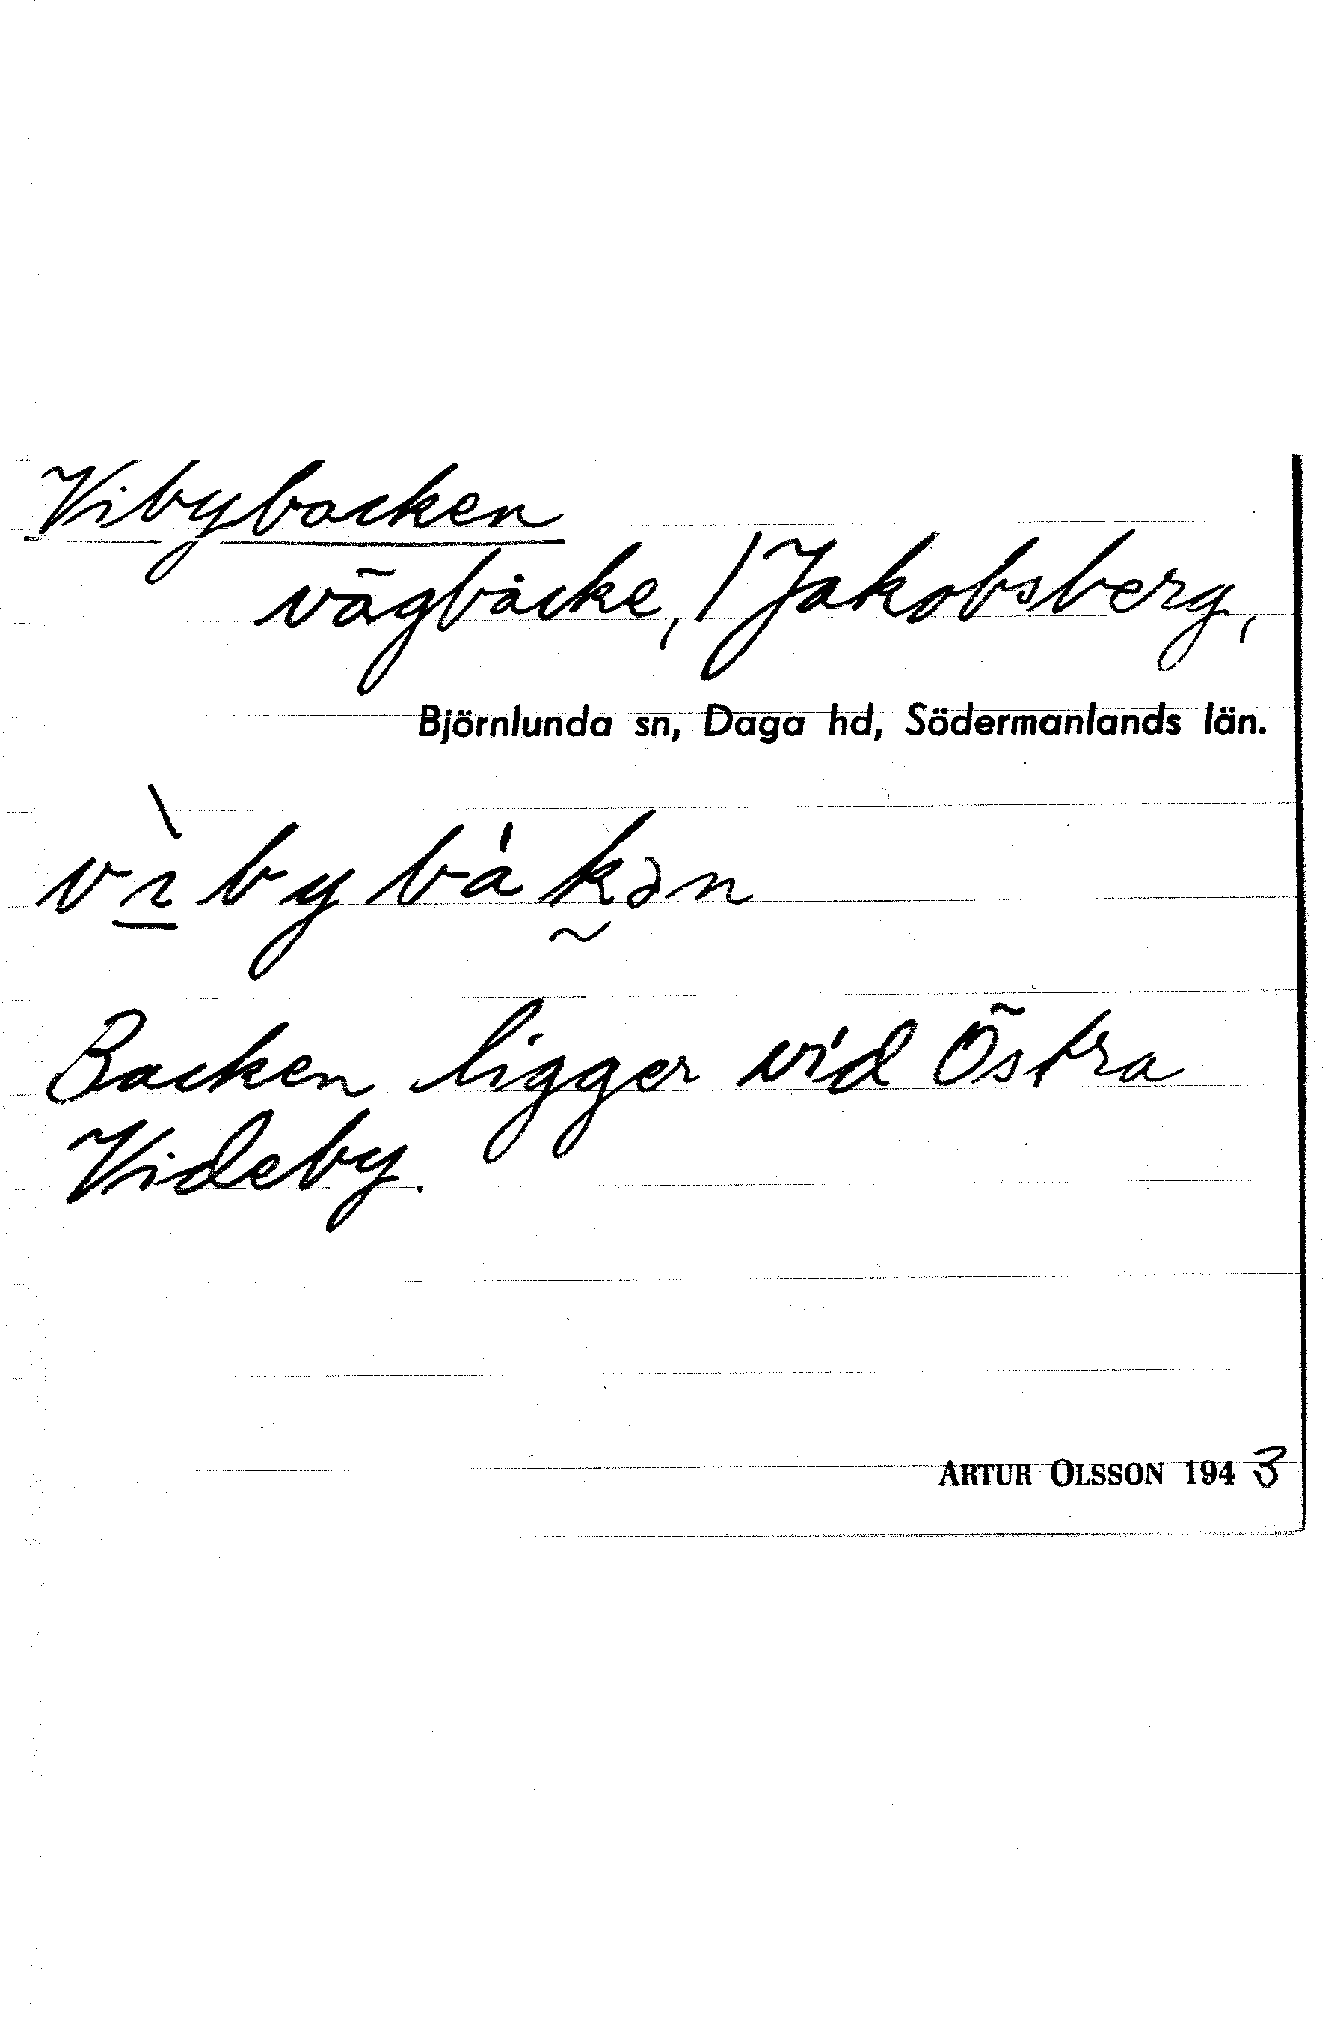 Vibybacken
vägbacke, / Jakobsberg,
Björnlunda sn, Daga hd, Södermanlands län.
vìbybàkən
Backen ligger vid Östra
Videby.
ARTUR OLSSON 1943